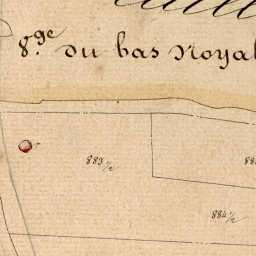 8.ge du bas Noyal
883 1/2
884 1/2